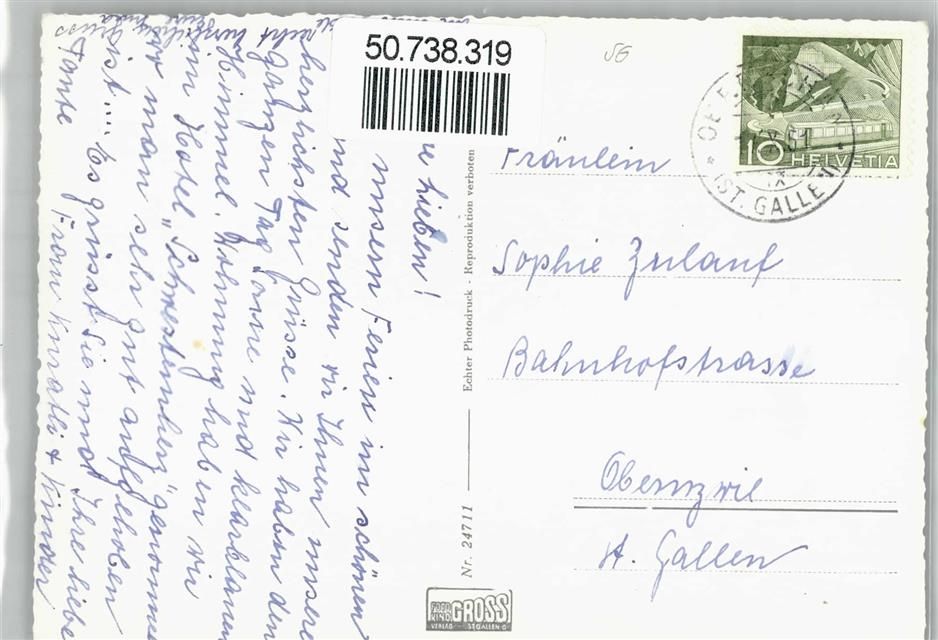 50.738.319
SG
10 HELVETIA
ST. GALLEN
Fräulein
Sophie Zulauf
Bahnhofstrasse
Oberuzwil
St. Gallen
Echter Photodruck - Reproduktion verboten
Nr. 24711
GROSS
VERLAG ST. GALLEN
Lieben!
unsern Ferien im schönen
und senden wir Ihnen unsere
herzlichsten Grüsse. Wir haben den
ganzen Tag Sonne und klarblauen
Himmel. Wohnung haben wir
im Hotel genommen
wo man sehr gut aufgehoben
ist.... Es grüsst Sie und Ihre liebe
Tante Frau & Kinder